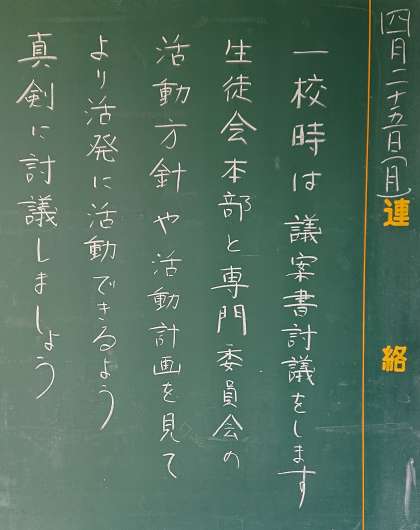 四月二十五日(月)
連絡
一校時は議案書討議をします
生徒会本部と専門委員会の
活動方針や活動計画を見て
より活発に活動できるよう
真剣に討議しましょう